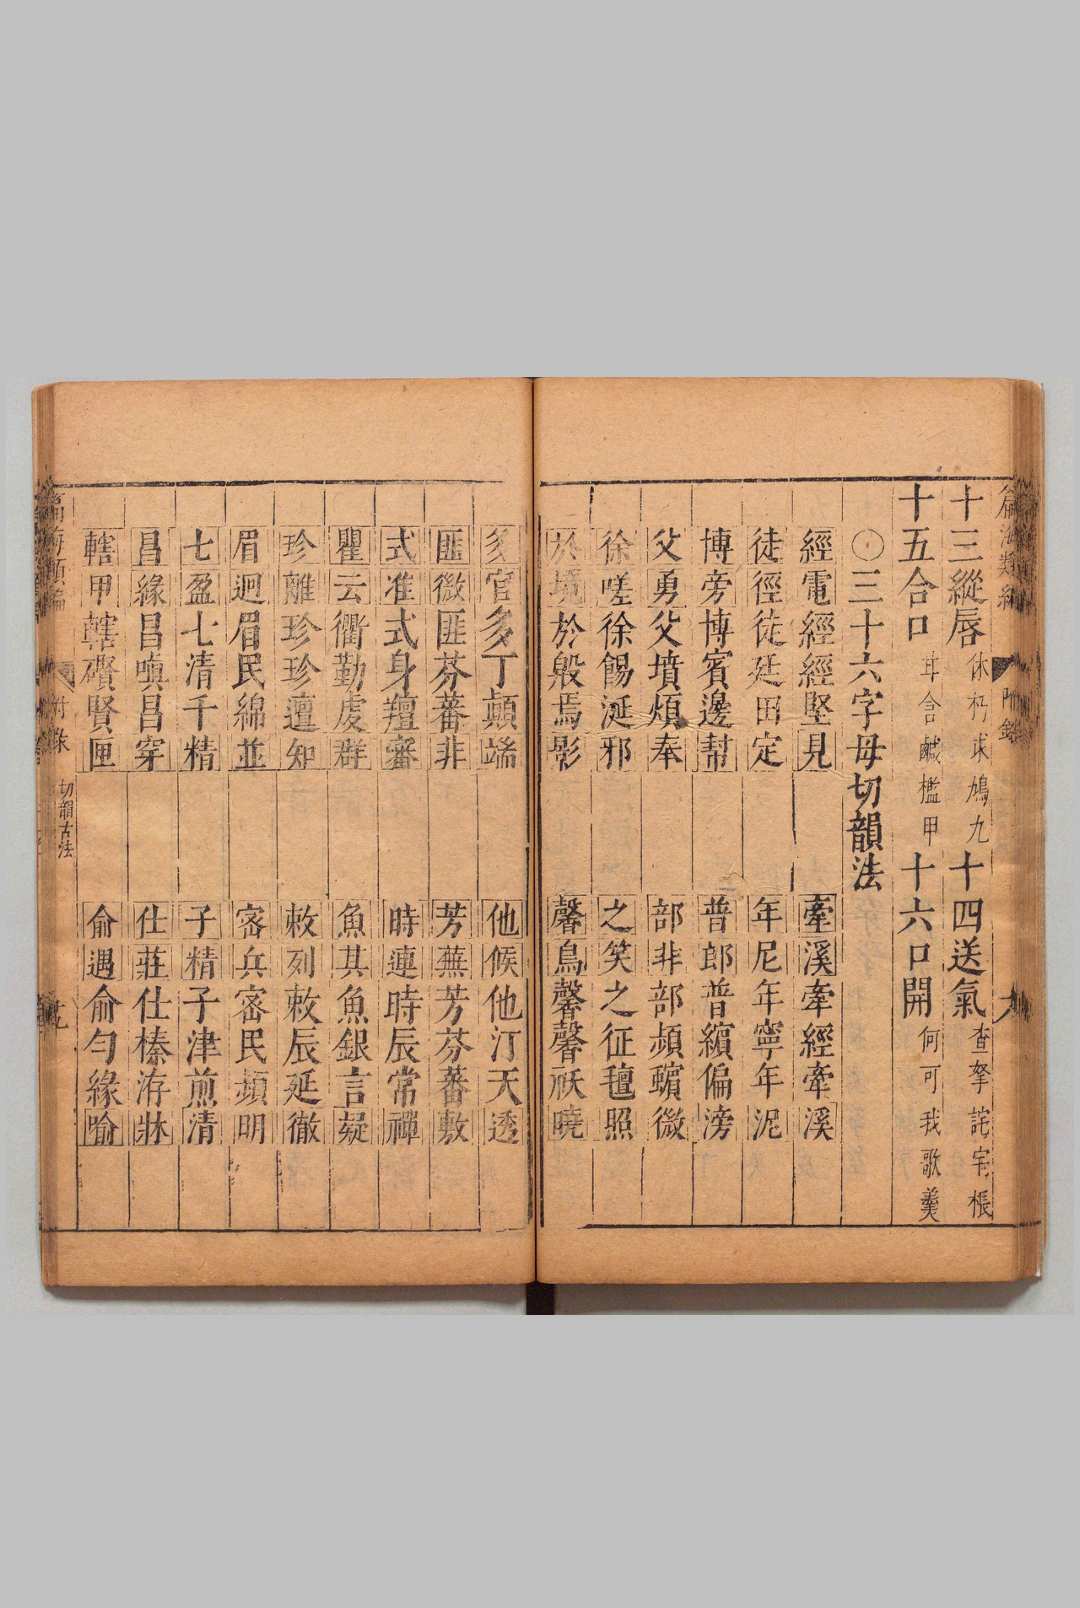 十三縱唇 休朽求鳩九 十四送氣 查拏詫宅棖
十五合口 甘含鹹檻甲 十六口開 何可我歌羹
〇三十六字母切韻法
經電經經堅見 牽溪牽經牽溪
徒徑徒廷田定 年尼年寧年泥
博旁博賓邊幫 普郎普繽偏滂
父勇父墳煩奉 部非部頻蠙微
徐嗟徐餳涎邪 之笑之征氊照
於境於殷焉影 馨鳥馨馨祆曉
多官多丁顛端 他候他汀天透
匪微匪芬蕃非 芳蕪芳芬蕃敷
式准式身羶審 時連時辰常禪
瞿云衢勤虔群 魚其魚銀言疑
珍離珍珍邅知 敕列敕辰延徹
眉迥眉民綿並 密兵密民頻明
七盈七清千精 子精子津煎清
昌緣昌嗔昌穿 仕莊仕榛洊牀
轄甲轄礥賢匣 俞遇俞勻緣喻
附錄 切韻古法